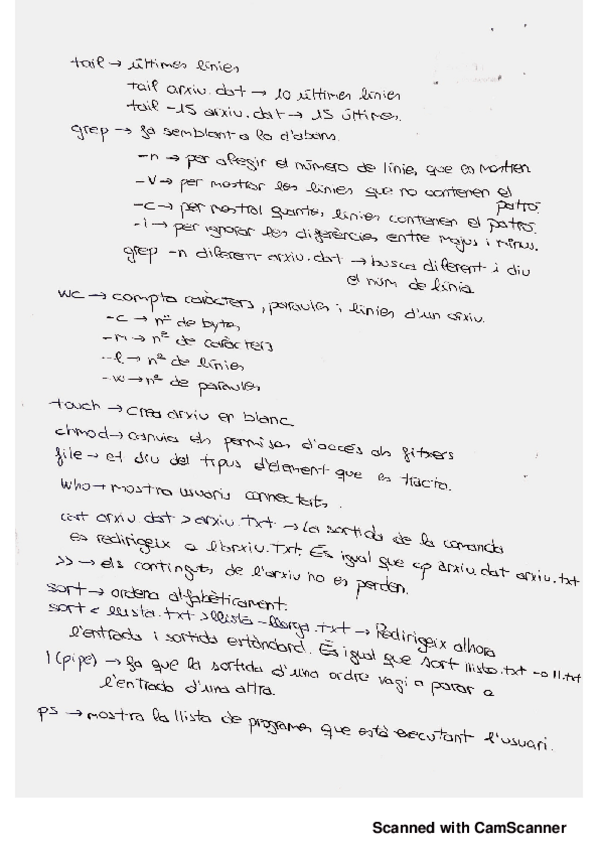 tail → últimes línies
tail arxiu.dat → 10 últimes línies
tail -15 arxiu.dat → 15 últimes.
grep → fa semblant a lo d'abans.
-n → per afegir el número de línie, que es mostren
-v → per mostrar les línies que no contenen el patró.
-c → per mostrar quantes línies contenen el patró.
-i → per ignorar les diferències entre majus i minus.
grep -n diferent arxiu.dat → busca diferent i diu
el núm de línia
wc → compta caràcters, paraules i línies d'un arxiu.
-c → nº de bytes
-m → nº de caràcters
-l → nº de línies
-w → nº de paraules
touch → crea arxiu en blanc
chmod → canvia els permisos d'accés als fitxers
file → et diu del tipus d'element que es tracta.
who → mostra usuaris connectats.
cat arxiu.dat > arxiu.txt → La sortida de la comanda
es redirigeix a l'arxiu.txt. És igual que cp arxiu.dat arxiu.txt
>> → els continguts de l'arxiu no es perden.
sort → ordena alfabèticament.
sort < llista.txt > llista-llarga.txt → Redirigeix alhora
l'entrada i sortida estàndard. És igual que sort llista.txt -o ll.txt
| (pipe) → fa que la sortida d'una ordre vagi a parar a
l'entrada d'una altra.
ps → mostra la llista de programes que està executant l'usuari.
Scanned with CamScanner